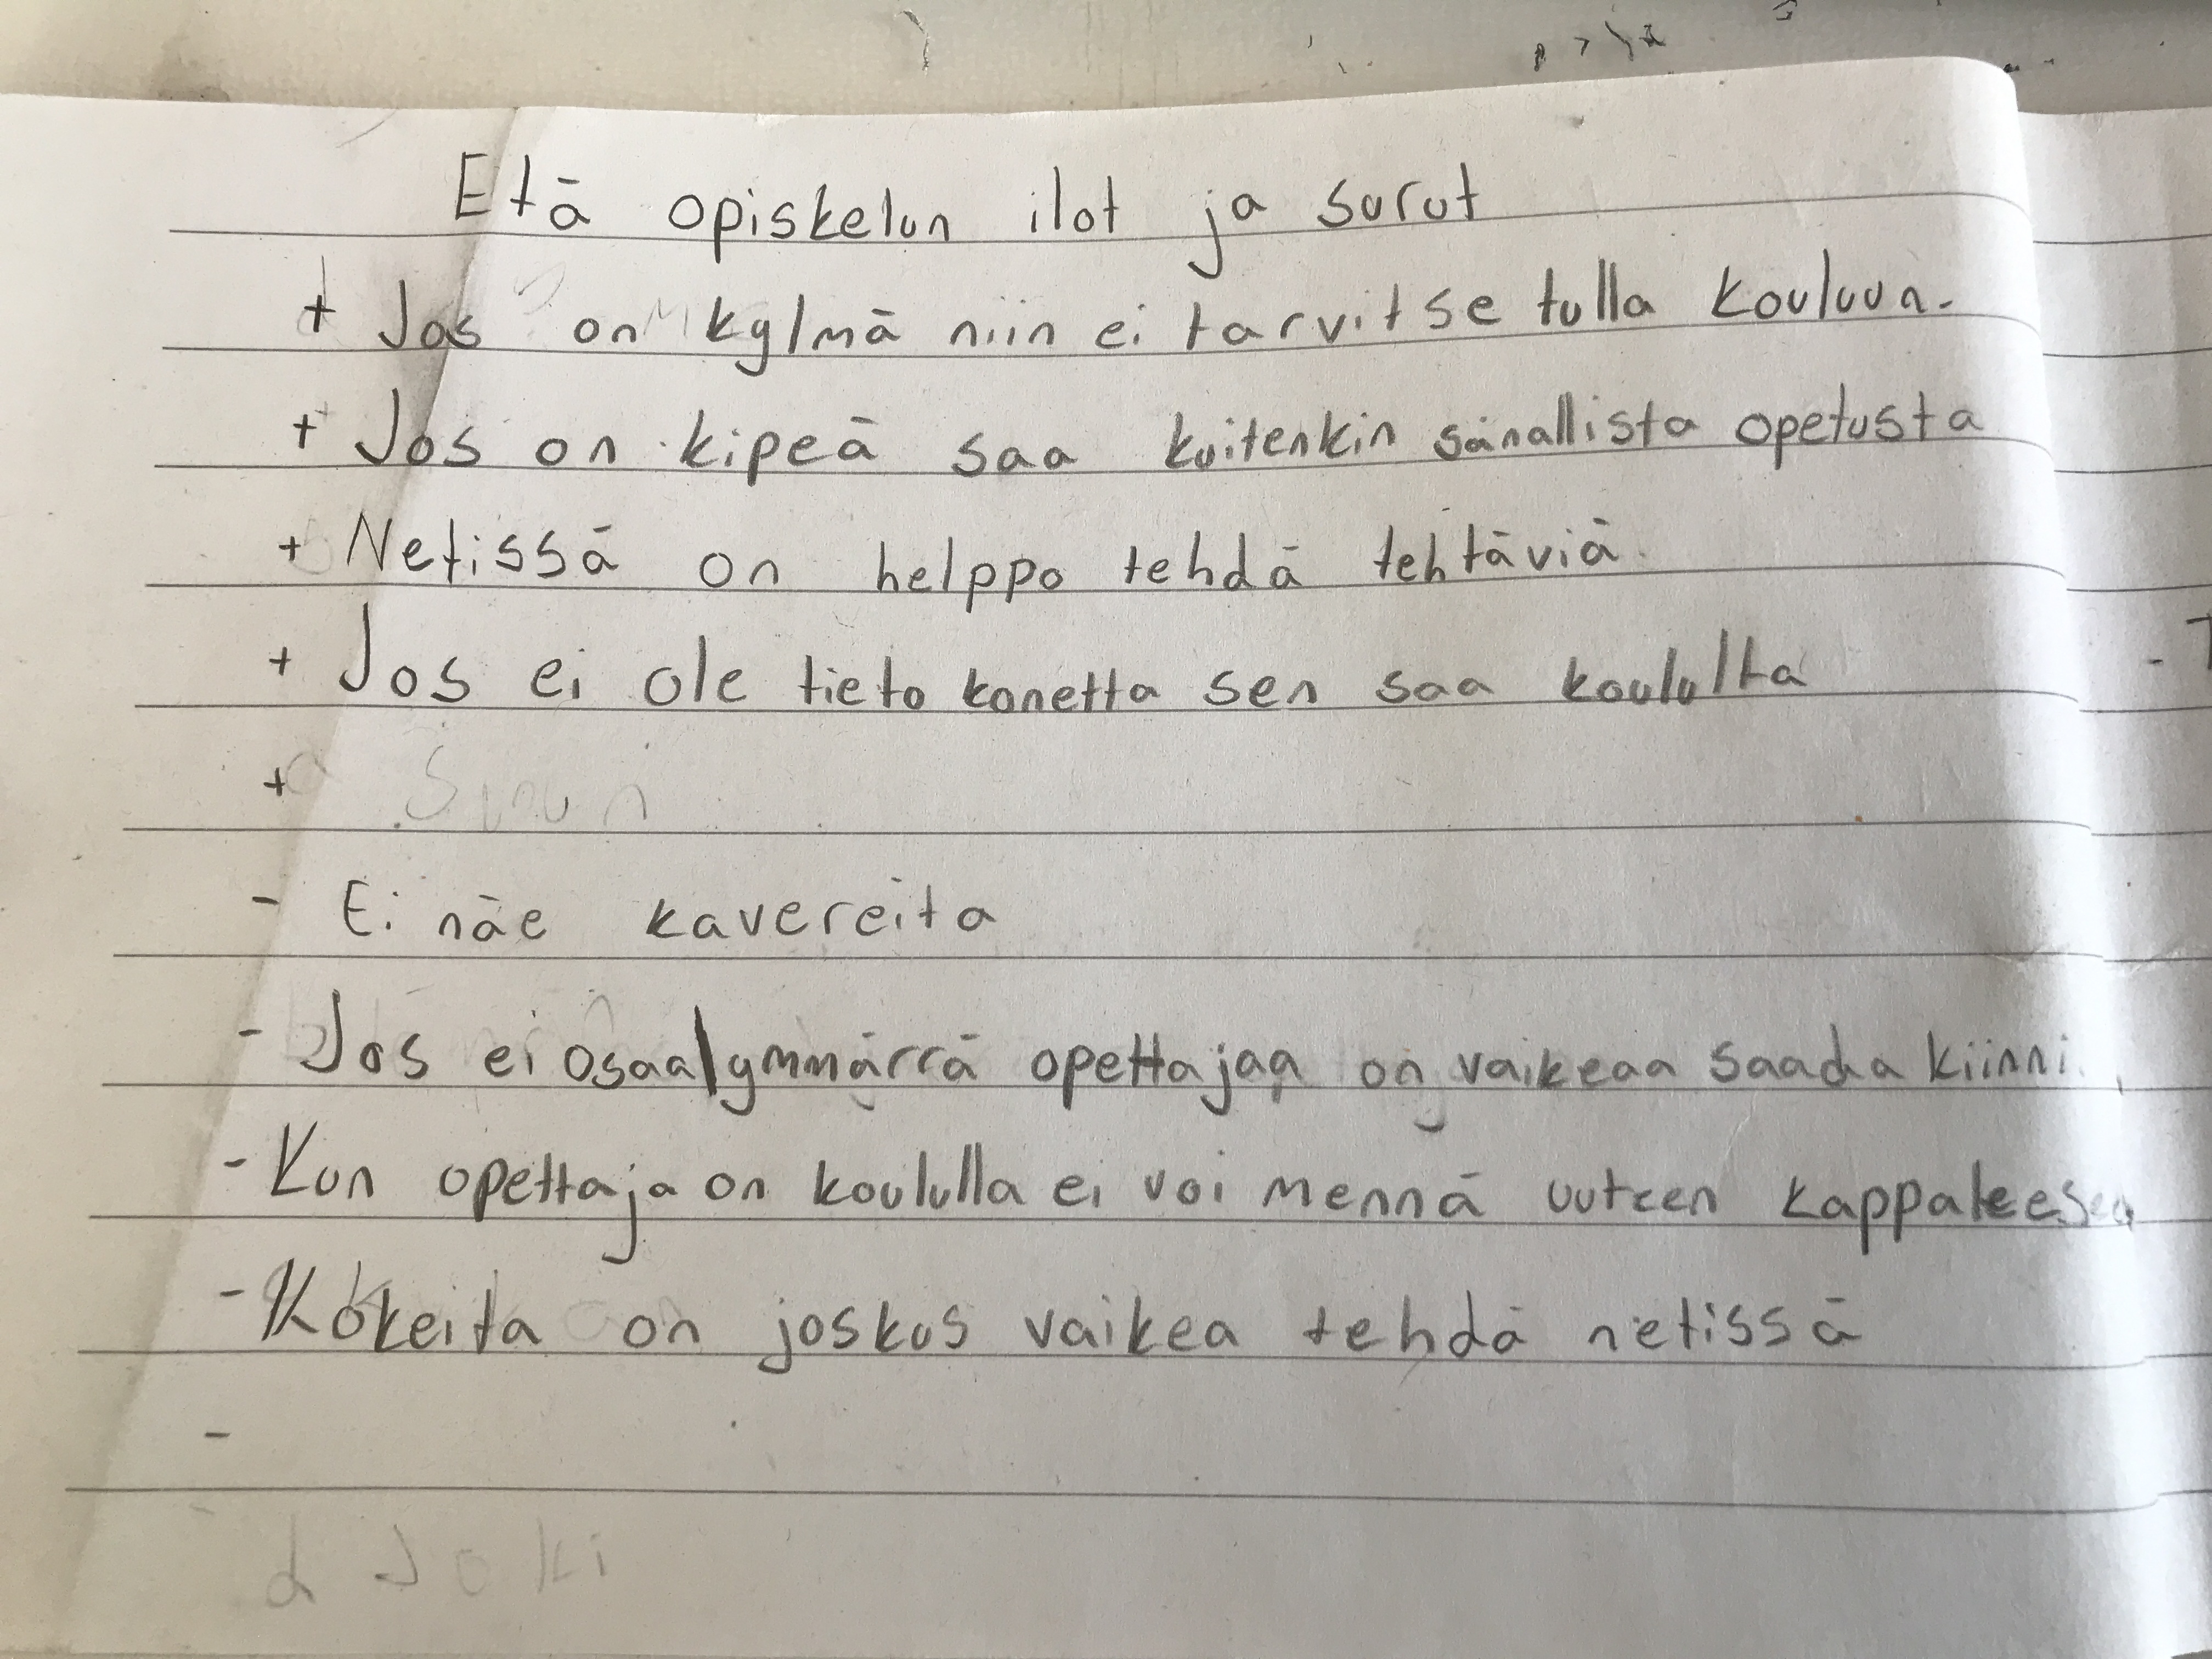 Etä opiskelun ilot ja surut
+ Jos on kylmä niin ei tarvitse tulla kouluun.
+ Jos on kipeä saa kuitenkin sanallista opetusta
+ Netissä on helppo tehdä tehtäviä.
+ Jos ei ole tieto konetta sen saa koululta
+
- Ei näe kavereita
- Jos ei osaa\ymmärrä opettajaa on vaikeaa saada kiinni.
- Kun opettaja on koululla ei voi mennä uuteen
- Kokeita on joskus vaikea tehdä netissä
-
Joki